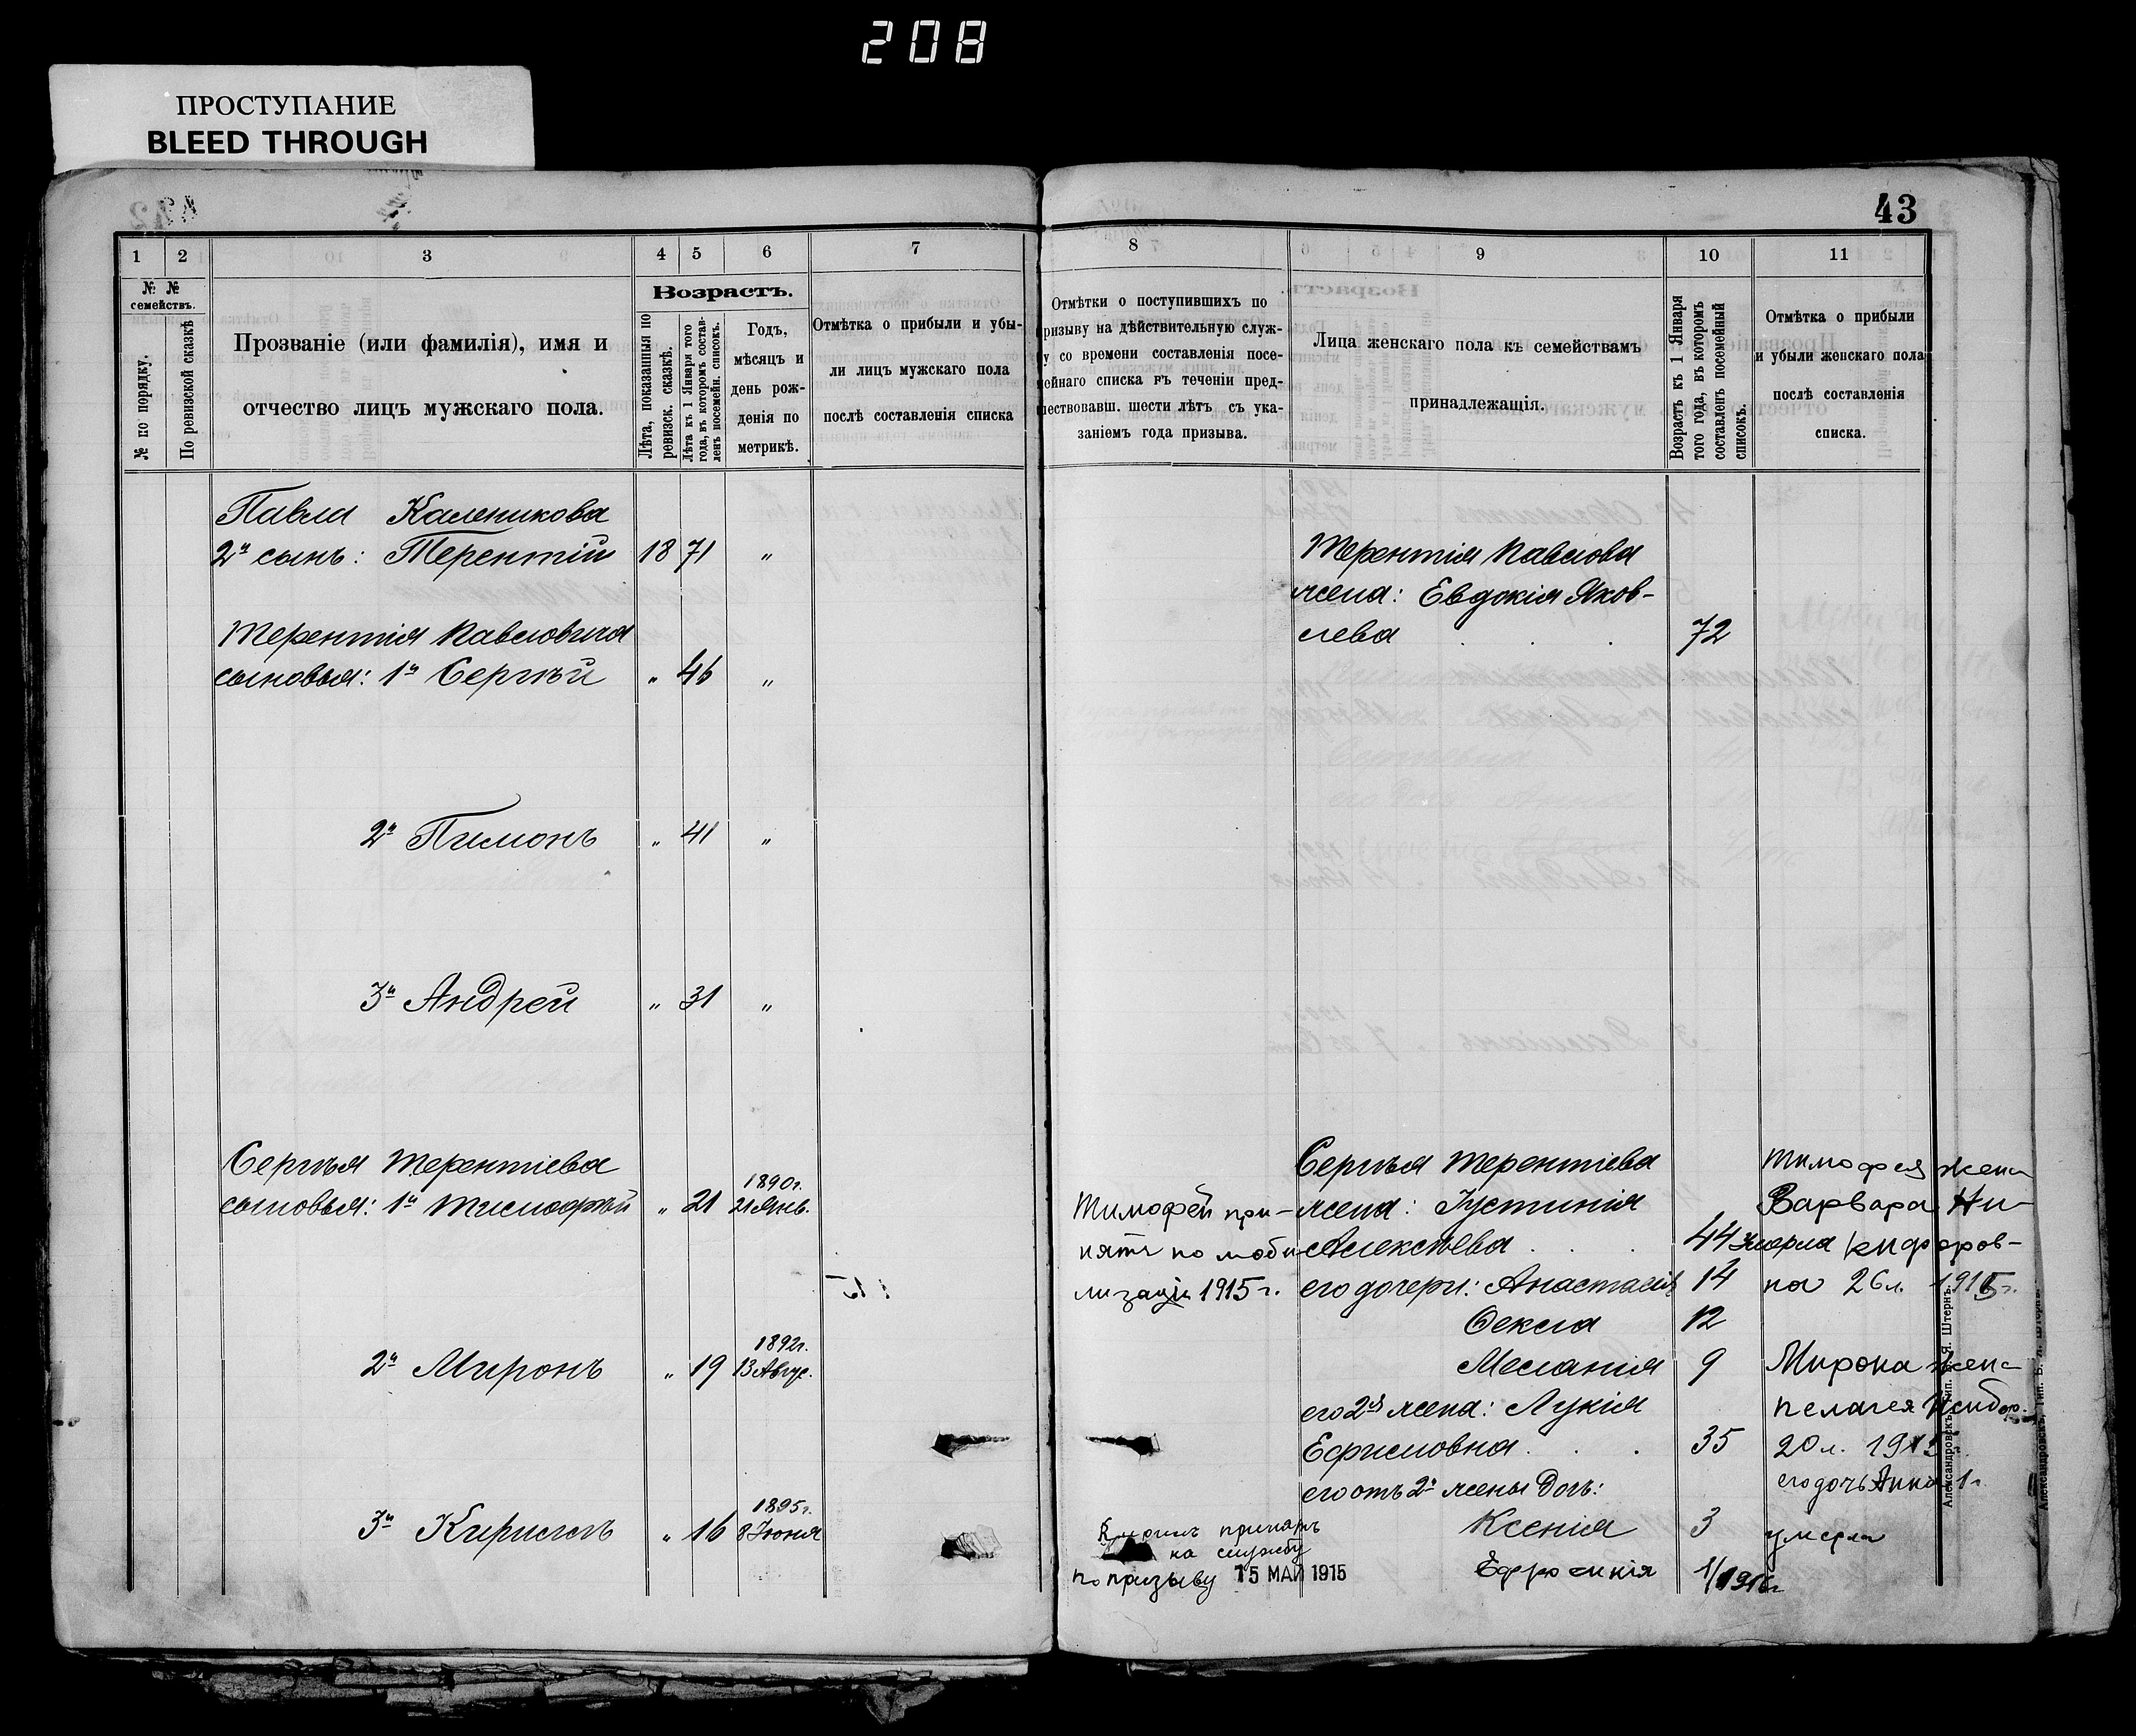 208
ПРОСТУПАНИЕ
BLEED THROUGH
43
1 2 3 4 5 6 7
№ № семействъ.
№ по порядку.
По ревизской сказкѣ
Прозваніе (или фамилія), имя и
отчество лицъ мужскаго пола.
Возрастъ.
Лѣта, показанныя по
ревизск. сказкѣ.
Лѣта къ 1 Января того
года, въ которомъ состав-
ленъ посемейн. списокъ.
Годъ,
мѣсяцъ и
день рож-
денія по
метрикѣ.
Отмѣтка о прибыли и убы-
ли лицъ мужскаго пола
послѣ составленія списка
Павла Каленикова
2й сынъ: Терентій 18 71 "
Терентія Павловича
сыновья: 1й Сергѣй " 46 "
2й Пимонъ " 41 "
3й Андрей " 31 "
Сергѣя Терентіева
1890г.
сыновья: 1й Тимофѣй " 21 21 Янв.
1892г.
2й Миронъ " 19 13 Авгус.
1895г.
3й Кириллъ " 16 8 Іюня
8 9 10 11
Отмѣтки о поступившихъ по
ризыву на дѣйствительную служ-
у со времени составленія посе-
ейнаго списка въ теченіи пред-
шествовавш. шести лѣтъ съ ука-
заніемъ года призыва.
Лица женскаго пола къ семействамъ
принадлежащія.
Возрастъ къ 1 Января
того года, въ которомъ
составленъ посемейный
списокъ.
Отмѣтка о прибыли
и убыли женскаго пола
послѣ составленія
списка.
Терентія Павлова
жена: Евдокія Яков-
лева . . 72
Сергѣя Терентіева
жена: Іустинія
Алексѣева . . 44 Умерла
его дочери: Анастасія 14
Оекла 12
Меланія 9
его 2я жена: Лукія
Ефимовна . . 35
его отъ 2й жены дочь:
Ксенія 3
Ефросинія 1/1916г
Тимофей при-
нятъ по моби-
лизаціи 1915 г.
на службу
по призыву 15 МАЙ 1915
Тимофея жена
Варвара Ни-
кифоров-
на 26 л. 1915г.
Мирона жена
Пелагея
20 л.
его дочь Анна 1 г.
умерла
Александровскъ, Тип. Б. Я. Штернъ.